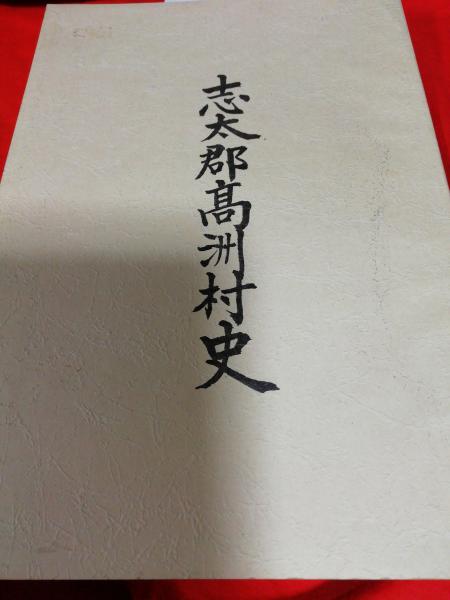 志太郡髙洲村史